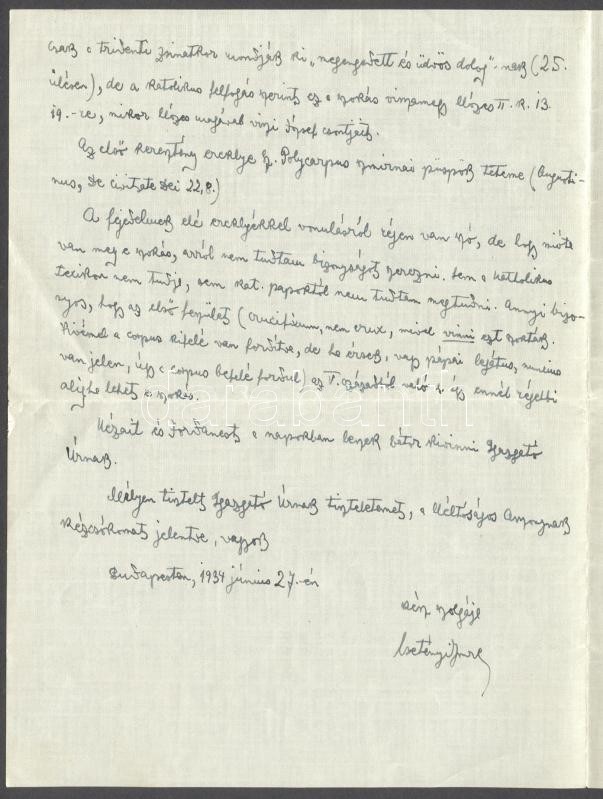 csak a tridenti zsinatkor mondják ki „megengedett és üdvös dolog"-nak (25.
ülésen), de a katolikus felfogás szerint ez a szokás visszamegy Mózes II. k. 13.
19.-re, mikor Mózes magával viszi József csontjait.
Az első keresztény ereklye sz. Polycarpus szmirnai püspök teteme (Augusti-
nus, De Civitate Dei 22,8.)
A fejedelmek elé ereklyékkel vonulásról régen van szó, de hogy mióta
van meg e szokás, arról nem tudtam bizonyságot szerezni. Sem a Katholikus
Lexikon nem tudja, sem kat. papoktól nem tudtam megtudni. Annyi bizo-
nyos, hogy az első feszület (crucifixum, nem crux, mivel vinni ezt szokták.
Kivévén a corpus kifelé van fordítva, de ha érsek, vagy pápai legátus, nuncius
van jelen, úgy a corpus befelé fordul) az V. századtól való s így ennél régebbi
aligha lehet a szokás.
Kézait és Jordanest a napokban leszek bátor kivinni Igazgató
Úrnak.
Mélyen tisztelt Igazgató Úrnak tiszteletemet, a Méltóságos Asszonynak
kézcsókomat jelentve, vagyok
Budapesten, 1934 június 27.-én
kész szolgája
Csetényi Imre
darabanth